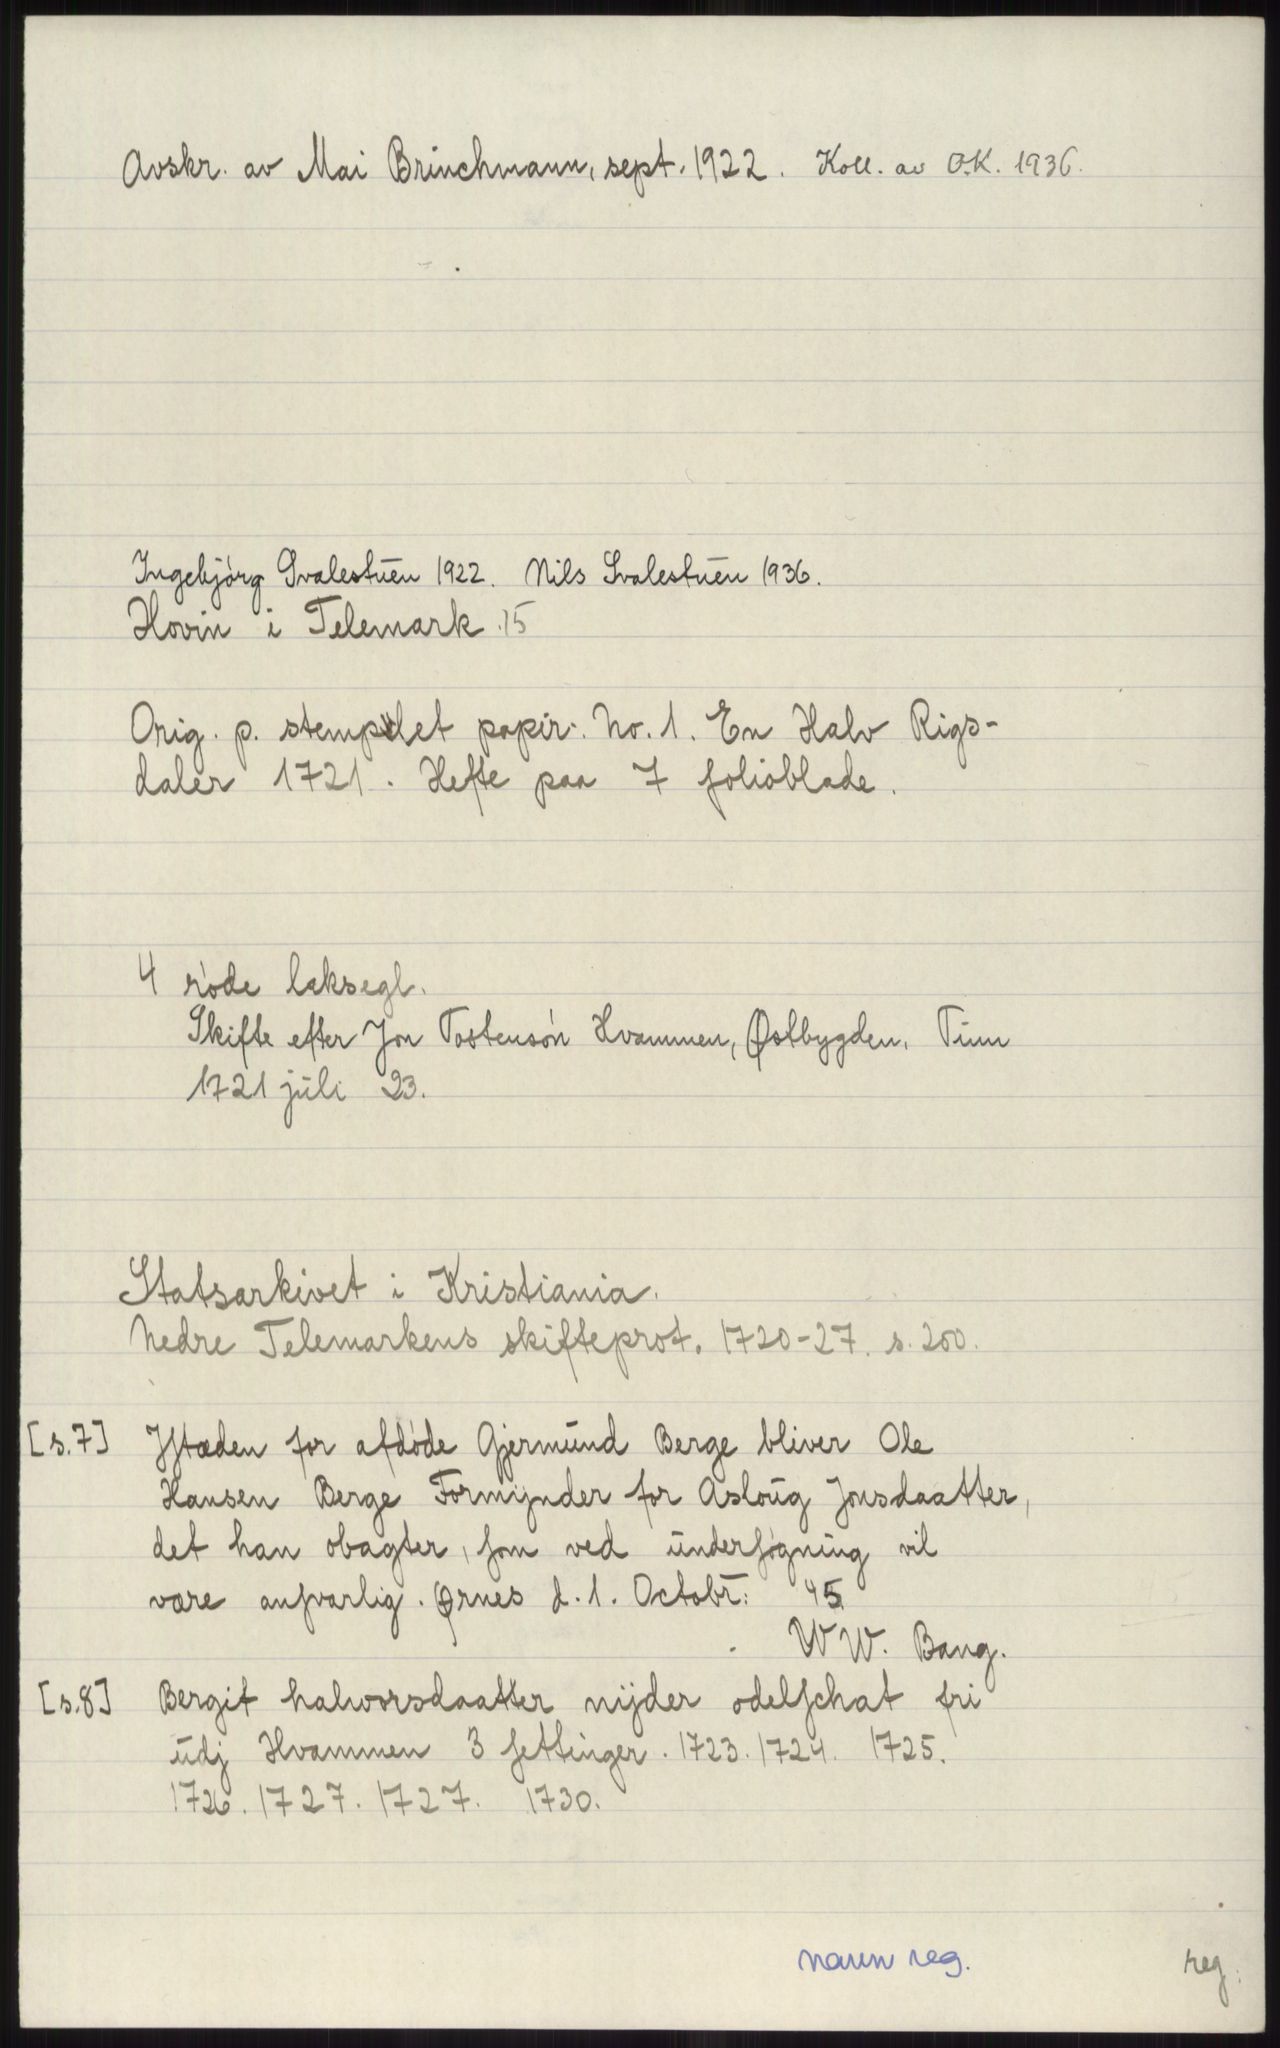 Avskr. av Mai Brinchmann, sept. 1922. Koll. av O.K. 1936.
Ingebjörg Svalestuen 1922. Nils Svalestuen 1936.
Hovin i Telemark 15
Orig. p. stemplet papir: No. 1. En Halv Rigs-
daler 1721. Hefte paa 7 folioblade.
4 röde laksegl.
Skifte efter Jon Tostensön Hvammen, Østbygden, Tinn
1721 juli 23.
Statsarkivet i Kristiania.
Nedre Telemarkens skifteprot. 1720-27. s. 200.
[s.7] Jstæden for afdöde Gjermund Berge bliver Ole
Hansen Berge Formynder for Asloug Jonsdaatter,
det han obagter, som ved undersögning vil
være ansvarlig. Ørnes d. 1. Octobr: 45
WW. Bang.
[s.8] Bergit halvorsdaatter nyder odelschat fri
udj Hvammen 3 settinger. 1723. 1724. 1725.
1726. 1727. 1727. 1730.
navn reg.
reg.